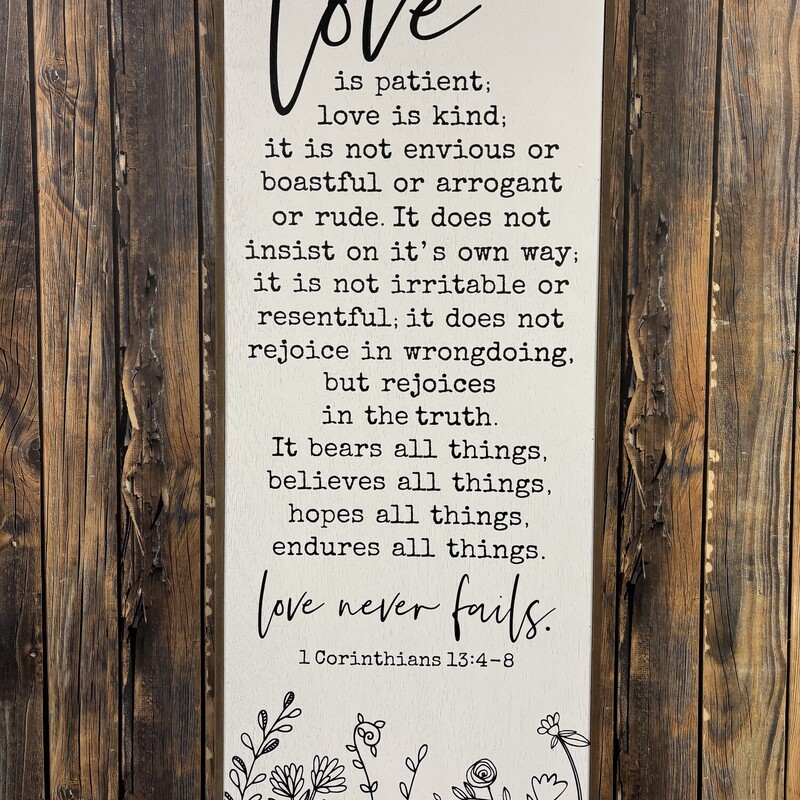 love
is patient;
love is kind;
it is not envious or
boastful or arrogant
or rude. It does not
insist on it's own way;
it is not irritable or
resentful; it does not
rejoice in wrongdoing,
but rejoices
in the truth.
It bears all things,
believes all things,
hopes all things,
endures all things.
love never fails.
1 Corinthians 13:4-8